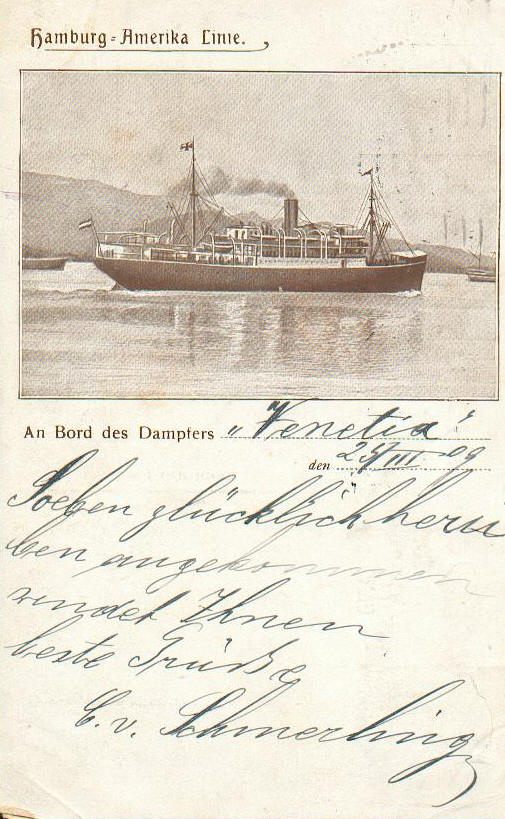 Hamburg-Amerika Linie.
An Bord des Dampfers „Venetia"
den III 09
Soeben glücklich
angekommen
sendet Ihnen
beste Grüße
C. v. Schmerling